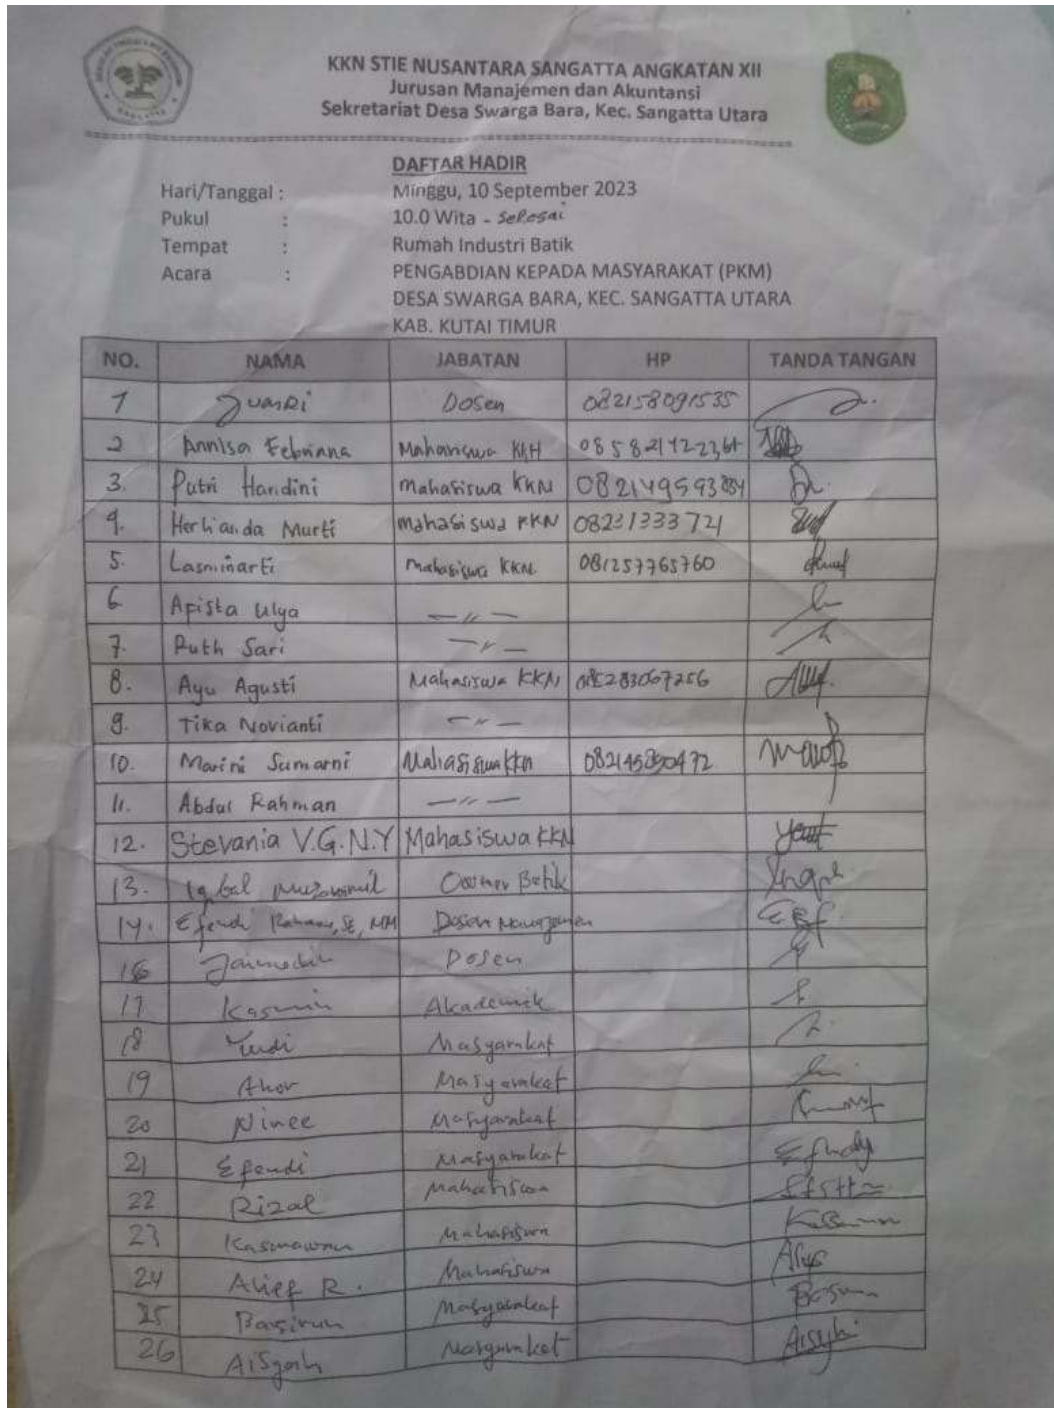 KKN STIE NUSANTARA SANGATTA ANGKATAN XII
Jurusan Manajemen dan Akuntansi
Sekretariat Desa Swarga Bara, Kec. Sangatta Utara
DAFTAR HADIR
Hari/Tanggal : Minggu, 10 September 2023
Pukul : 10.0 Wita - selesai
Tempat : Rumah Industri Batik
Acara : PENGABDIAN KEPADA MASYARAKAT (PKM)
DESA SWARGA BARA, KEC. SANGATTA UTARA
KAB. KUTAI TIMUR
NO. NAMA JABATAN HP TANDA TANGAN
1 Juanri Dosen 082158091535
2 Annisa Febriana Mahasiswa KKN
3. Putri Handini Mahasiswa KKN
4. Herlianda Murti Mahasiswa KKN 08231333721
5. Lasminarti Mahasiswa KKN 081257765760
6 Apista Ulya —〃 —
7. Ruth Sari — 〃 —
8. Ayu Agusti Mahasiswa KKN
9. Tika Novianti — 〃 —
10. Marini Sumarni Mahasiswa KKN
11. Abdul Rahman — 〃 —
12. Stevania V.G.N.Y Mahasiswa KKN
13. Iqbal Owner Batik
14. Efendi SE, MM Dosen Manajemen
16 Dosen
17 Kasmin Akademik
18 Yudi Masyarakat
19 Masyarakat
20 Ninee Masyarakat
21 Efendi Masyarakat
22 Rizal Mahasiswa
23 Kasmawan Mahasiswa
24 Alief R. Mahasiswa
25 Basirun Masyarakat
26 Aisyah Masyarakat